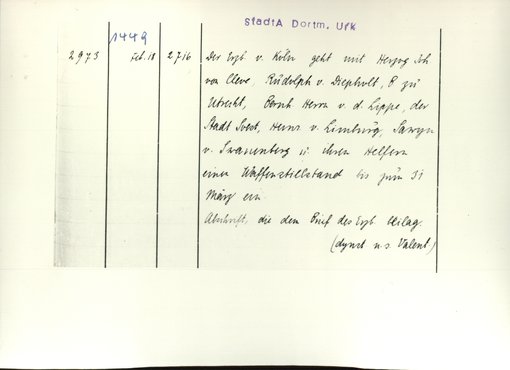 StadtA Dortm. Urk
1449
2973 Feb. 18 2716 Der Erzb v. Köln geht mit Herzog Joh
von Cleve, Rudolph v. Diepholt, B zu
Utrecht, Bernh Herrn v. d. Lippe, der
Stadt Soest, Heinr v. Limburg, Sweryn
v. Swanenberg u. ihren Helfern
einen Waffenstillstand bis zum 31
März ein.
Abschrift, die dem Brief des Erzb beilag.
(dynst n. s. Valent.)